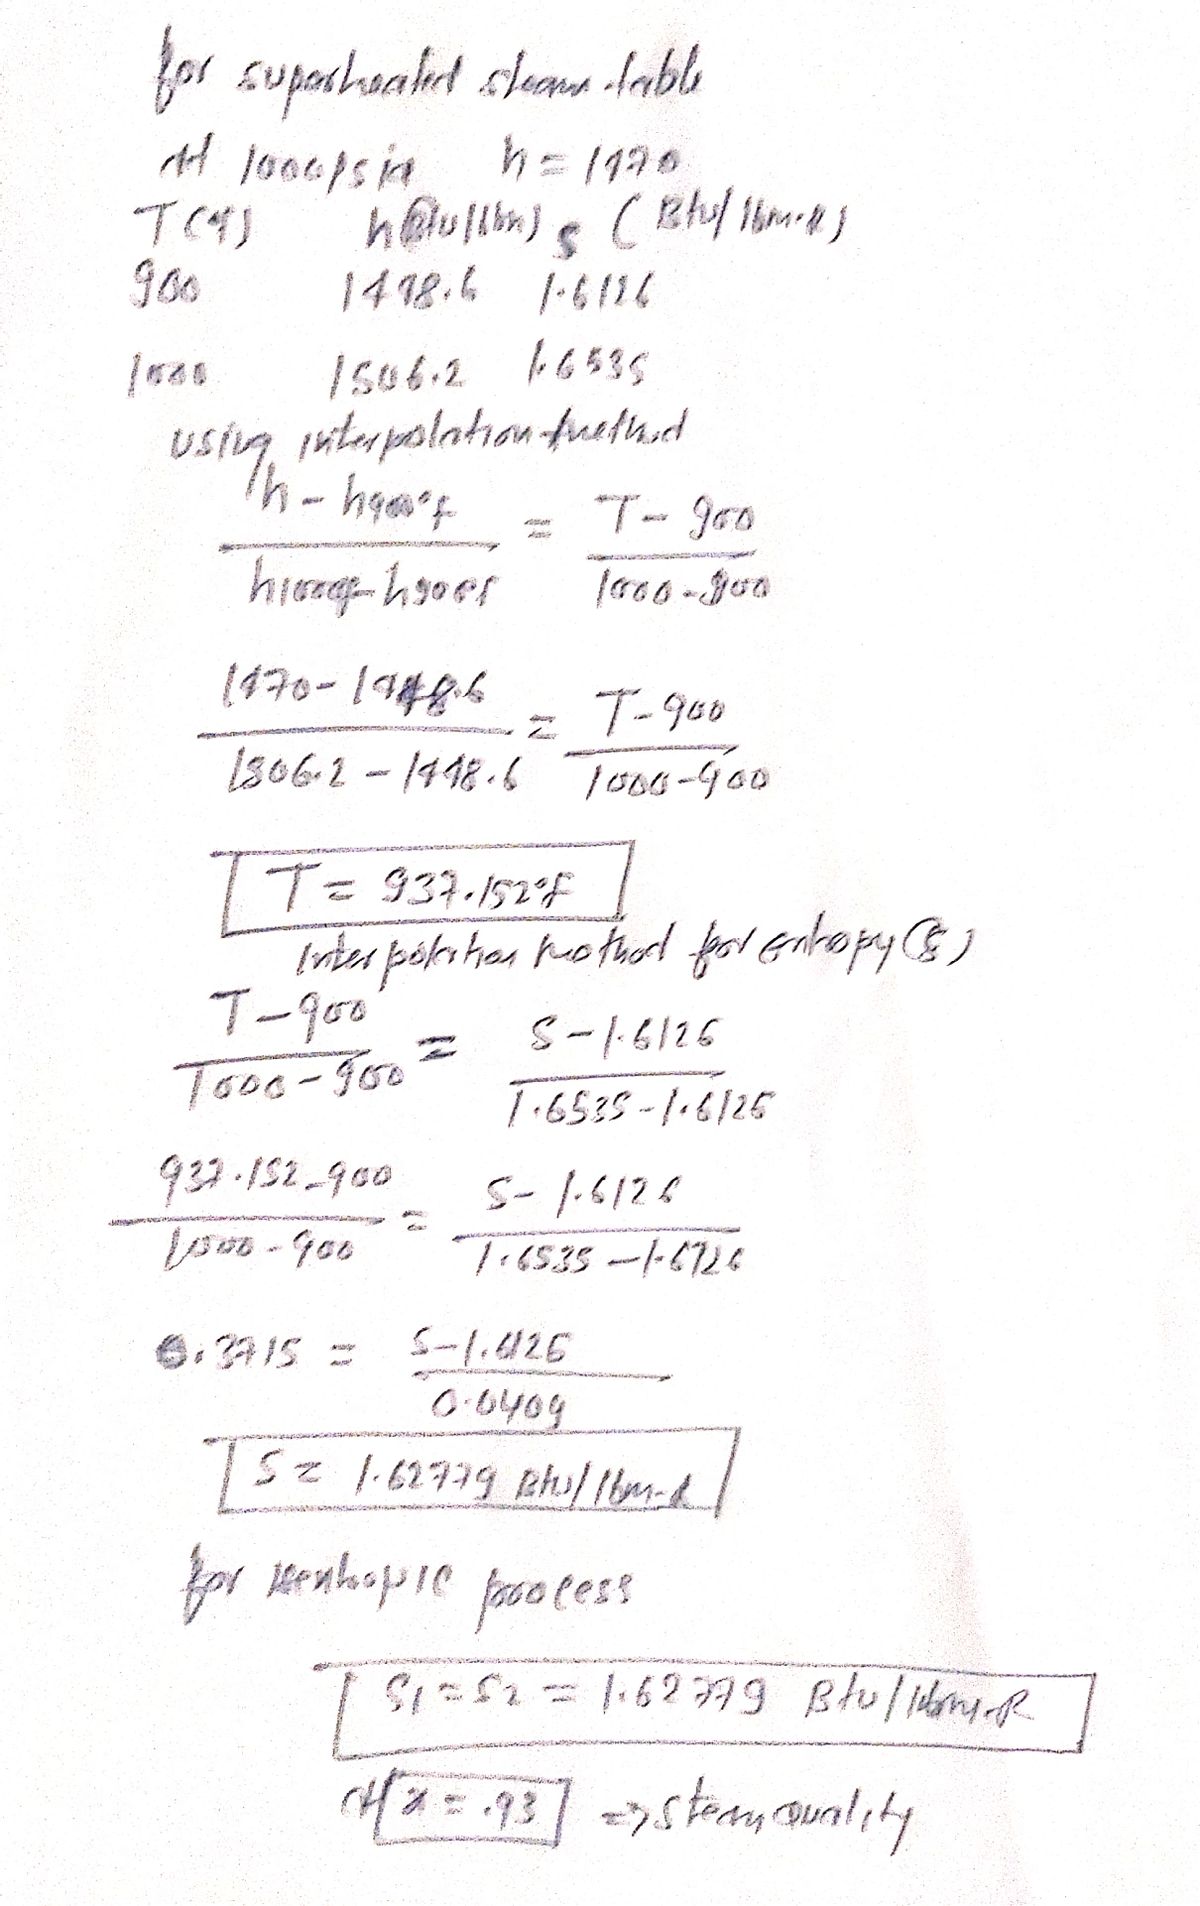 for superheated steam table
At 1000psia h = 1470
T(°F) h(Btu/lbm) s (Btu/lbm·R)
900 1448.6 1.6126
1000 1506.2 1.6535
using interpolation method
h - h900°f / h1000°f - h900°f = T - 900 / 1000 - 900
1470 - 1448.6 / 1506.2 - 1448.6 = T - 900 / 1000 - 900
T = 937.152°F
Interpolation method for entropy (s)
T - 900 / 1000 - 900 = S - 1.6126 / 1.6535 - 1.6126
937.152 - 900 / 1000 - 900 = S - 1.6126 / 1.6535 - 1.6126
0.3715 = S - 1.6126 / 0.0409
S = 1.62779 Btu/lbm-R
for isentropic process
S1 = S2 = 1.62779 Btu/lbm-R
At x = .93 => steam quality